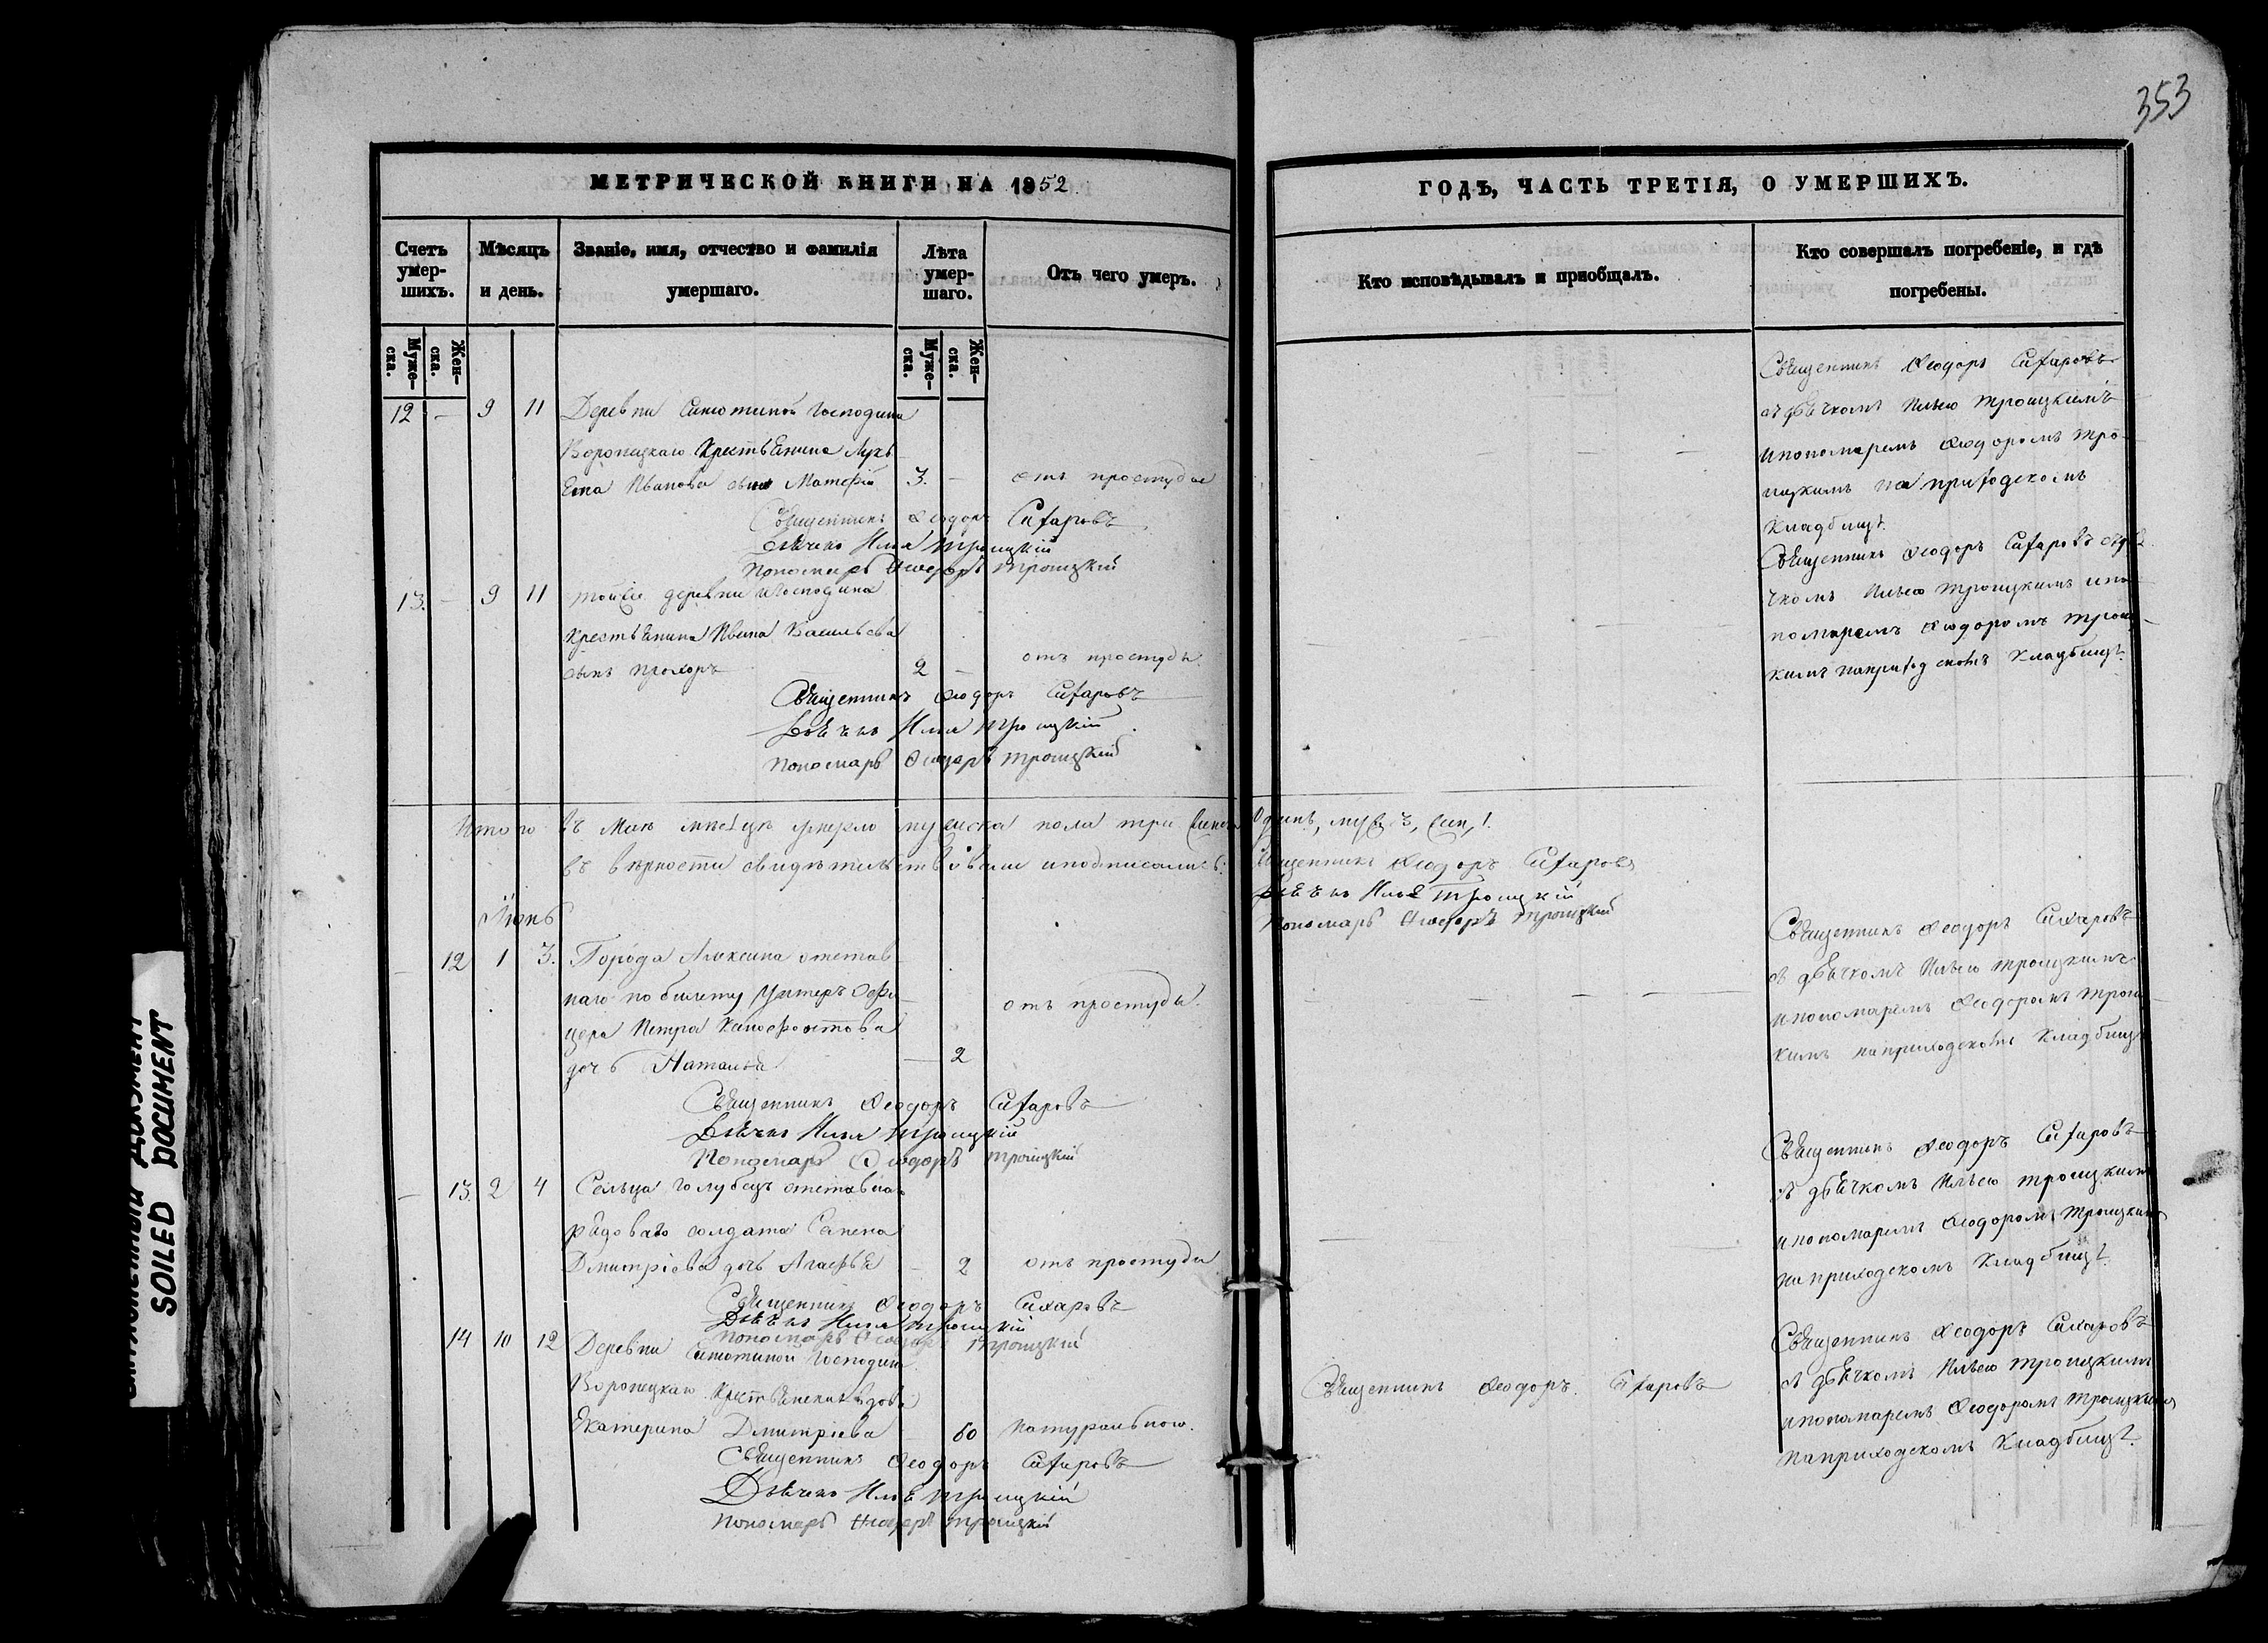 353
МЕТРИЧЕСКОЙ КНИГИ НА 1852
ГОДЪ, ЧАСТЬ ТРЕТІЯ, О УМЕРШИХЪ.
Счетъ умер-шихъ.
Мѣсяцъ и день.
Званіе, имя, отчество и фамилія умершаго.
Лѣта умер-шаго.
Отъ чего умеръ.
Кто исповѣдывалъ и приобщалъ.
Кто совершалъ погребеніе, и гдѣ погребены.
Муже-ска.
Жен-ска.
Муже-ска.
Жен-ска.
12 - 9 11 Деревни Синютиной Господина
Крестьянина
Иванова сынъ 3. - отъ простуды
Священникъ Ѳеодоръ Сахаровъ
Дьячекъ Илья Троицкій
Пономарь Ѳеодоръ Троицкій
Священникъ Ѳеодоръ Сахаровъ
съ дьячкомъ Ильею Троицкимъ
и пономаремъ Ѳеодоромъ Тро-
ицкимъ на приходскомъ
кладбищѣ.
13. - 9 11 тойже деревни и Господина
крестьянина Ивана Васильева
сынъ Прохоръ 2 - отъ простуды.
Священникъ Ѳеодоръ Сахаровъ
Дьячекъ Илья Троицкій
Пономарь Ѳеодоръ Троицкій
Священникъ Ѳеодоръ Сахаровъ съ дья-
чкомъ Ильею Троицкимъ и по-
номаремъ Ѳеодоромъ Трои-
кимъ на приходскомъ кладбищѣ.
Итого въ Маѣ мѣсяцѣ умерло мужеска пола три женска Одинъ, муж. 3, жен, 1.
въ вѣрности свидѣтельствовали и подписались: Священникъ Ѳеодоръ Сахаровъ
Дьячекъ Илья Троицкій
Пономарь Ѳеодоръ Троицкій
Іюнь
- 12 1 3. Города Алексина отстав-
наго по билету Унтеръ Офи-
цера Петра
дочь Наталья - 2 отъ простуды.
Священникъ Ѳеодоръ Сахаровъ
Дьячекъ Илья Троицкій
Пономарь Ѳеодоръ Троицкій
Священникъ Ѳеодоръ Сахаровъ
съ дьячкомъ Ильею Троицкимъ
и пономаремъ Ѳеодоромъ Трои-
кимъ на приходскомъ кладбищѣ
- 13. 2 4 Сельца Голубецъ отставнаго
рядоваго солдата Семена
Дмитріева дочь Агафья - 2 отъ простуды
Священникъ Ѳеодоръ Сахаровъ
Дьячекъ Илья Троицкій
Пономарь Ѳеодоръ Троицкій
Священникъ Ѳеодоръ Сахаровъ
съ дьячкомъ Ильею Троицкимъ
и пономаремъ Ѳеодоромъ Троицкимъ
на приходскомъ кладбищѣ.
14 10 12 Деревни Синютиной Господина
вдова
Екатерина Дмитріева - 60 натуральною.
Священникъ Ѳеодоръ Сахаровъ
Дьячекъ Илья Троицкій
Пономарь Ѳеодоръ Троицкій
Священникъ Ѳеодоръ Сахаровъ
Священникъ Ѳеодоръ Сахаровъ
съ дьячкомъ Ильею Троицкимъ
и пономаремъ Ѳеодоромъ Троицкимъ
на приходскомъ кладбищѣ.
SOILED DOCUMENT